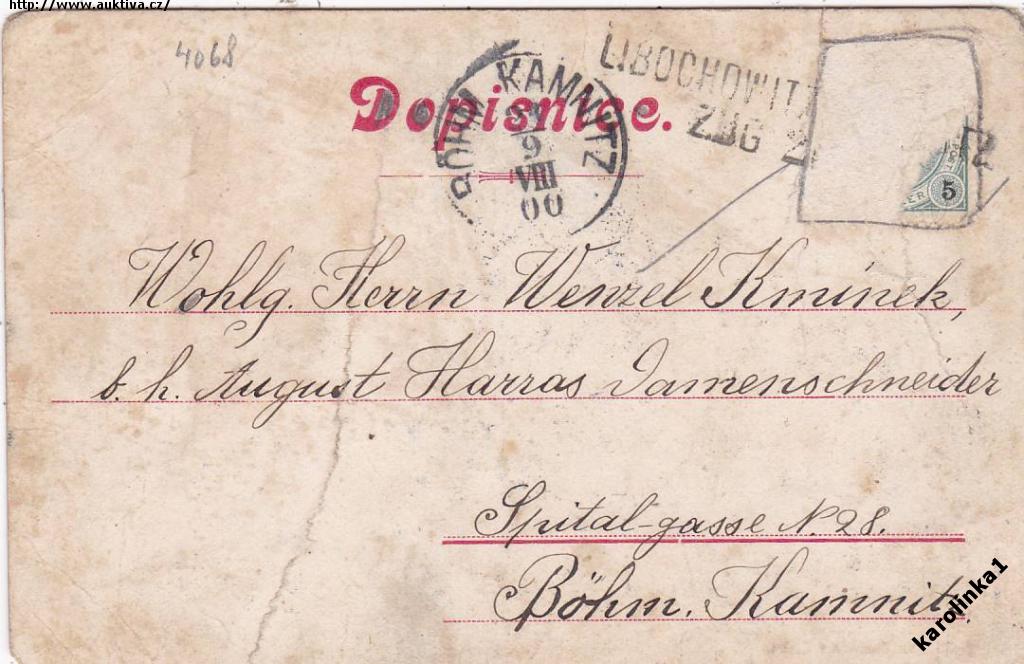 http://www.auktiva.cz/
4068
Dopisnice.
BÖHM KAMNITZ
9
VIII
00
LIBOCHOWIT
ZBG
5
Wohlg. Herrn Wenzel Kmínek,
b. h. August Harras Damenschneider
Spital-gasse N. 28.
Böhm. Kamnitz
karolinka1